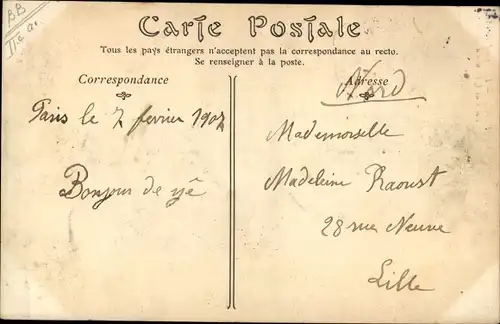 BB
Carte Postale
Tous les pays étrangers n'acceptent pas la correspondance au recto.
Se renseigner à la poste.
Correspondance
Adresse
Nord
Paris le 7 février 1907
Bonjour de
Mademoiselle
Madeleine Raoust
28 rue Neuve
Lille